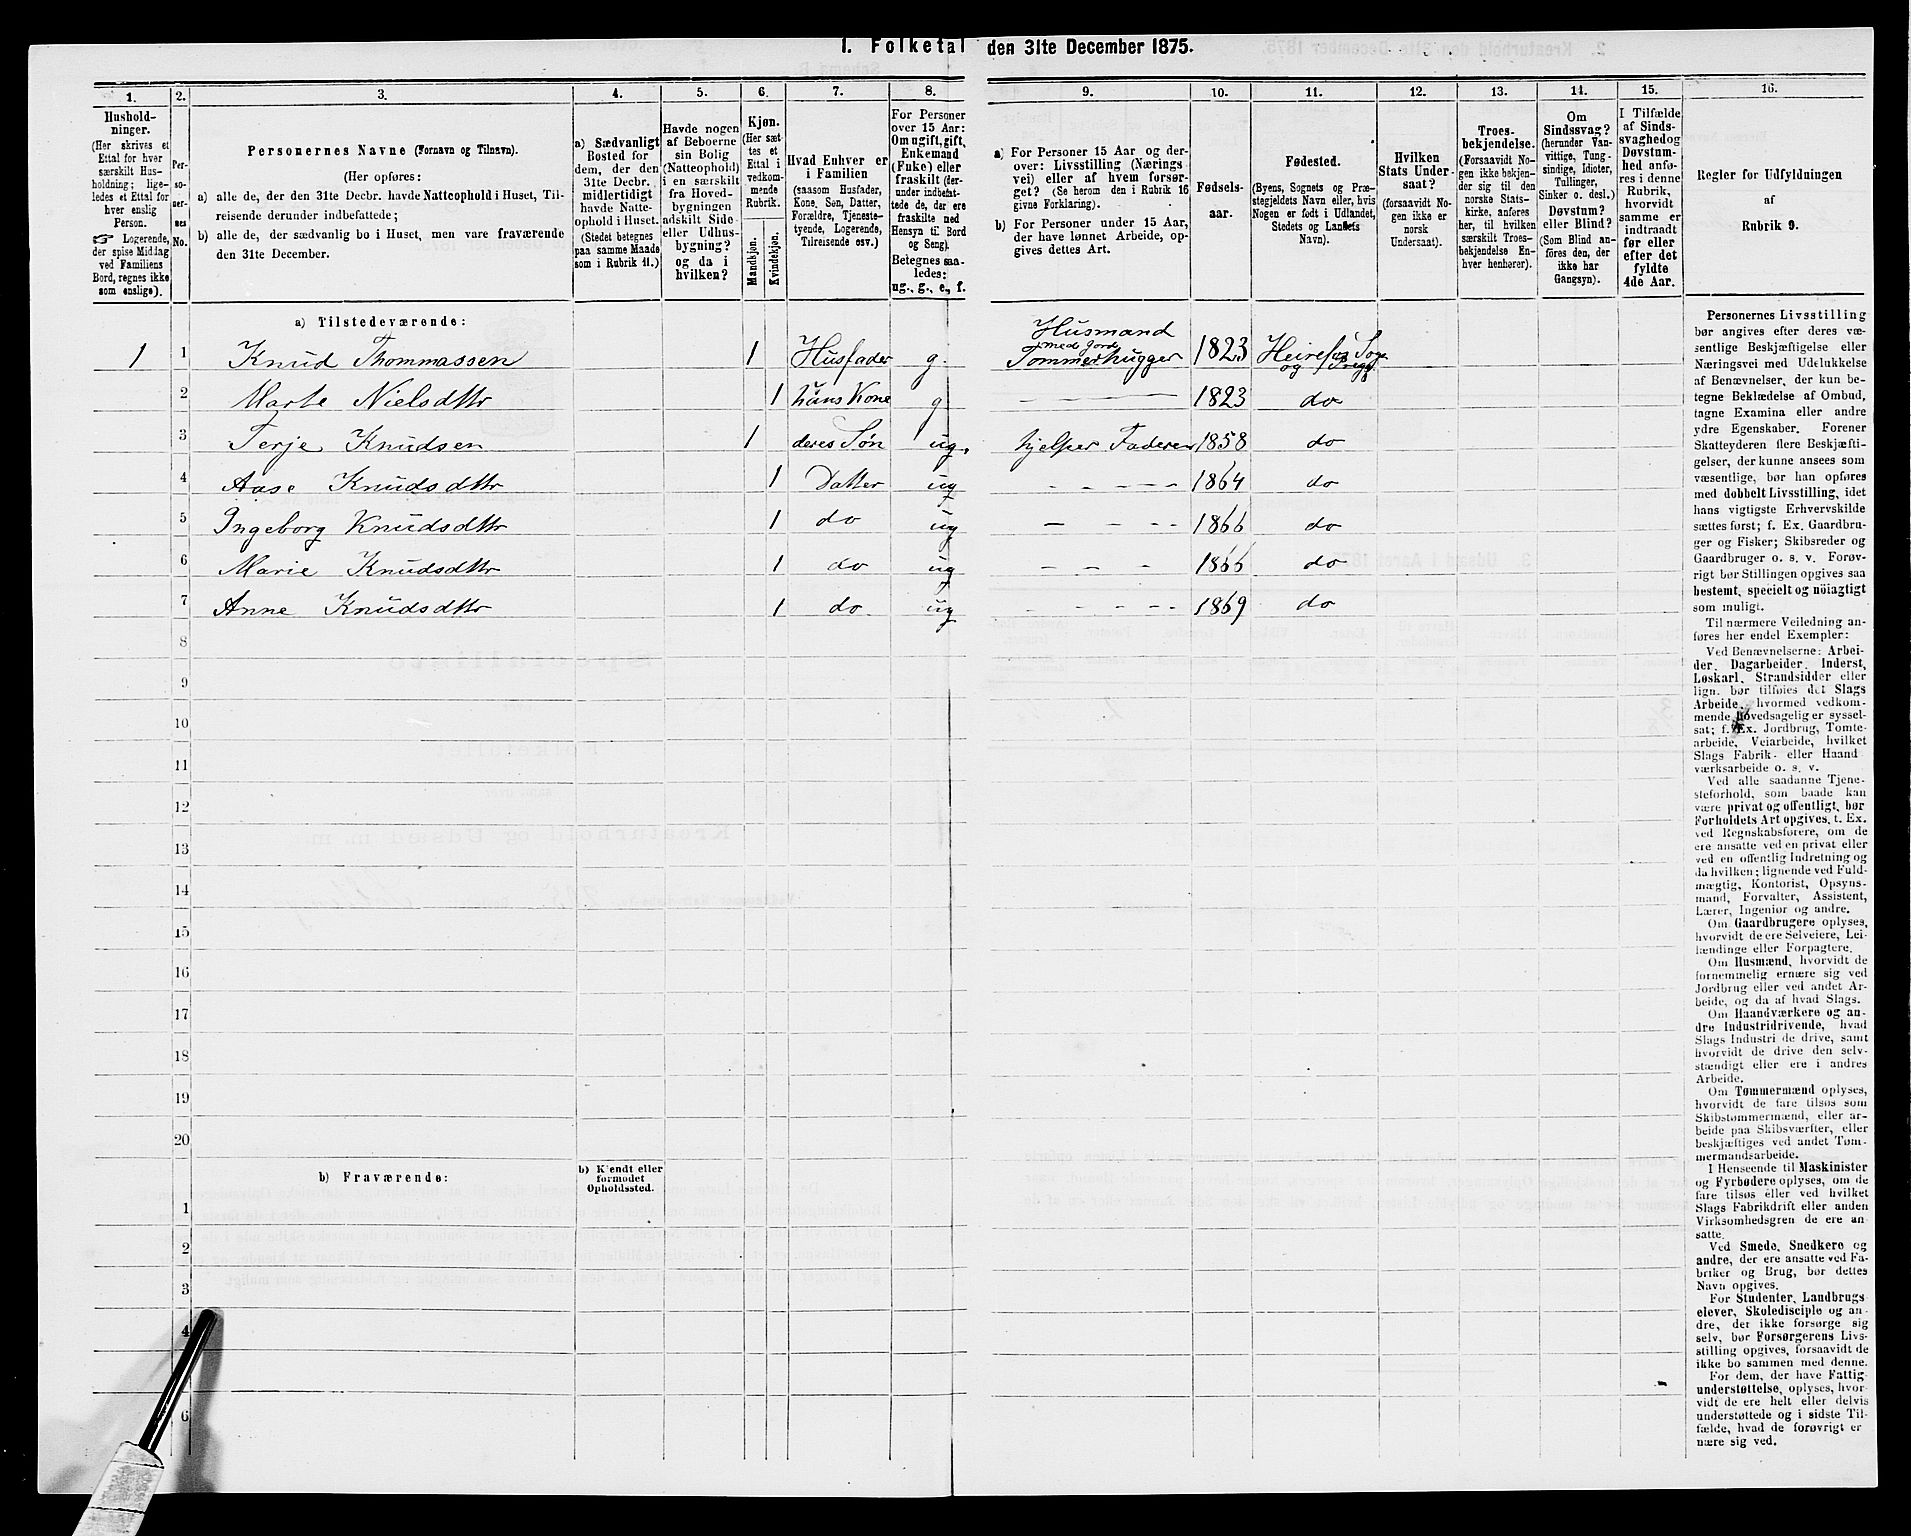 1. Folketal den 31te December 1875.
1.
Hushold-
ninger.
(Her skrives et
Ettal for hver
særskilt Hus-
holdning; lige-
ledes et Ettal for
hver enslig
Person.
☞ Logerende,
der spise Middag
ved Familiens
Bord, regnes ikke
som enslige).
2.
Per-
so-
ner-
nes
No.
3.
Personernes Navne (Fornavn og Tilnavn).
(Her opføres:
a) alle de, der den 31te Decbr. havde Natteophold i Huset, Til-
reisende derunder indbefattede;
b) alle de, der sædvanlig bo i Huset, men vare fraværende
den 31te December.
4.
a) Sædvanligt
Bosted for
dem, der den
31te Decbr.
midlertidigt
havde Natte-
ophold i Huset.
(Stedet betegnes
paa samme Maade
som i Rubrik 11.)
5.
Havde nogen
af Beboerne
sin Bolig
(Natteophold)
i en særskilt
fra Hoved-
bygningen
adskilt Side-
eller Udhus-
bygning?
og da i
hvilken?
6.
Kjøn.
(Her sæt-
tes et
Ettal i
vedkom-
mende
Rubrik.
Mandkjøn.
Kvindekjøn.
7.
Hvad Enhver er
i Familien
(saasom Husfader,
Kone, Søn, Datter,
Forældre, Tjeneste-
tyende, Logerende,
Tilreisende osv.)
8.
For Personer
over 15 Aar:
Om ugift, gift,
Enkemand
(Enke) eller
fraskilt (der-
under indbefat-
tede de, der ere
fraskilte ned
Hensyn til Bord
og Seng).
Betegnes saa-
ledes:
ug., g., e., f.
9.
a) For Personer 15 Aar og der-
over: Livsstilling (Nærings
vei) eller af hvem forsør-
get? (Se herom den i Rubrik 16
givne Forklaring).
b) For Personer under 15 Aar,
der have lønnet Arbeide, op-
gives dettes Art.
10.
Fødsels-
aar.
11.
Fødested.
(Byens, Sognets og Præ-
stegjeldets Navn eller, hvis
Nogen er født i Udlandet,
Stedets og Landets
Navn).
12.
Hvilken
Stats Under-
saat?
(forsaavidt No-
gen ikke er
norsk
Undersaat).
13.
Troes-
bekjendelse.
(Forsaavidt No-
gen ikke bekjen-
der sig til den
norske Stats-
kirke, anføres
her, til hvilken
særskilt Troes-
bekjendelse En-
hver henhører).
14.
Om
Sindssvag?
(herunder Van-
vittige, Tung-
sindige, Idioter,
Tullinger,
Sinker o. desl.)
Døvstum?
eller Blind?
(Som Blind an-
føres den, der
ikke har
Gangsyn).
15.
I Tilfælde
af Sinds-
svaghedog
Døvstum-
hed anfø-
res i denne
Rubrik,
hvorvidt
samme er
indtraadt
før eller
efter det
fyldte
4de Aar.
16.
Regler for Udfyldningen
af
Rubrik 9.
a) Tilstedeværende:
1 1 Knud Thommassen 1 Husfader g. Husmand med jord Tømmerhugger 1823 Sogn og
2 Marte Nielsdttr 1 hans Kone g — — — 1823 do
3 Terje Knudsen 1 deres Søn ug. hjelper Faderen 1858 do
4 Aase Knudsdttr 1 Datter ug - - - - - 1864 do
5 Ingeborg Knudsdttr 1 do ug — — - - - 1866 do
6 Marie Knudsdttr 1 do ug - - - - 1866 do
7 Anne Knudsdttr 1 do. ug - - - - - 1869 do
8
9
10
11
12
13
14
15
16
17
18
19
20
b) Fraværende:
b) Kjendt eller
formodet
Opholdssted.
1
2
3
4
6
Personernes Livsstilling
bør angives efter deres væ-
sentlige Beskjæftigelse eller
Næringsvei med Udelukkelse
af Benævnelser, der kun be-
tegne Beklædelse af Ombud,
tagne Examina eller andre
ydre Egenskaber. Forener
Skatteyderen flere Beskjæfti-
gelser, der kunne ansees som
væsentlige, bør han opføres
med dobbelt Livsstilling, idet
hans vigtigste Erhvervskilde
sættes først; f. Ex. Gaardbru-
ger og Fisker; Skibsreder og
Gaardbruger o. s. v. Forøv-
rigt bør Stillingen opgives saa
bestemt, specielt og nöiagtigt
som muligt.
Til nærmere Veiledning an-
føres her endel Exempler:
Ved Benævnelserne: Arbei-
der, Dagarbeider, Inderst,
Løskarl, Strandsidder eller
lign. bør tilføies det Slags
Arbeide, hvormed vedkom-
mende hovedsagelig er syssel-
sat; f. Ex. Jordbrug, Tomte-
arbeide, Veiarbeide, hvilket
Slags Fabrik- eller Haand
værksarbeide o. s. v.
Ved alle saadanne Tjene-
steforhold, som baade kan
være privat og offentligt, bør
Forholdets Art opgives, t. Ex.
ved Regnskabsførere, om de
ere ansatte ved en privat eller
ved en offentlig Indretning og
da hvilken; lignende ved Fuld-
mægtig, Kontorist, Opsyns-
mand, Forvalter, Assistent,
Lærer, Ingeniør og andre.
Om Gaardbrugere oplyses,
hvorvidt de ere Selveiere, Lei-
lændinge eller Forpagtere.
Om Husmænd, hvorvidt de
fornemmelig ernære sig ved
Jordbrug eller ved andet Ar-
beide, og da af hvad Slags.
Om Haandværkere og an-
dre Industridrivende, hvad
Slags Industri de drive, samt
hvorvidt de drive den selv-
stændigt eller ere i andres
Arbeide.
Om Tømmermænd oplyses,
hvorvidt de fare tilsøs som
Skibstømmermænd, eller ar-
beide paa Skibsværfter, eller
beskjæftiges ved andet Tøm-
mermandsarbeide.
I Henseende til Maskinister
og Fyrbødere oplyses, om de
fare tilsøs eller ved hvilket
Slags Fabrikdrift eller anden
Virksomhedsgren de ere an-
satte.
Ved Smede, Snedkere og
andre, der ere ansatte ved Fa-
briker og Brug, bør dettes
Navn opgives.
For Studenter, Landbrugs-
elever, Skoledisciple og an-
dre, der ikke forsørge sig
selv, bør Forsørgerens Livs-
stilling opgives, forsaavidt de
ikke bo sammen med denne.
For dem, der have Fattig-
understøttelse, oplyses, hvor-
vidt de ere helt eller delvis
understøttede og i sidste Til-
fælde, hvad de forøvrigt er
nære sig ved.